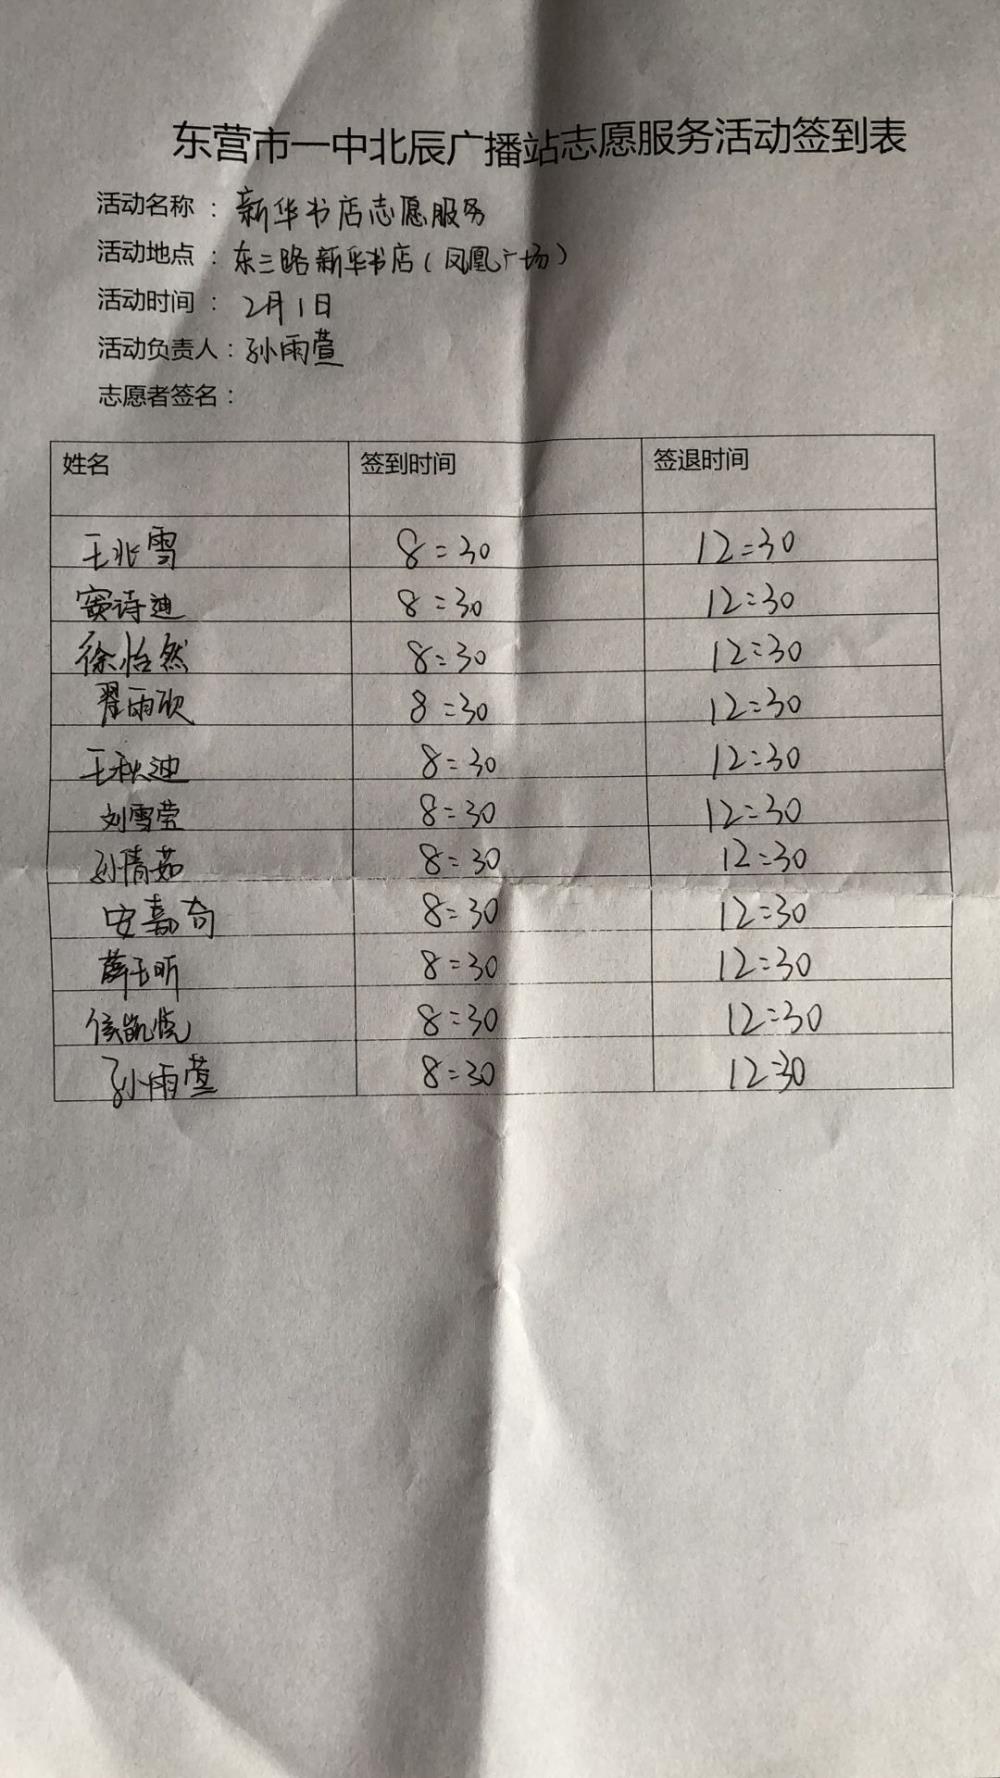 东营市一中北辰广播站志愿服务活动签到表
活动名称：新华书店志愿服务
活动地点：东三路新华书店（凤凰广场）
活动时间：2月1日
活动负责人：孙雨萱
志愿者签名：
姓名 签到时间 签退时间
王兆雪 8:30 12:30
窦诗迪 8:30 12:30
徐怡然 8:30 12:30
翟雨欣 8:30 12:30
王秋迪 8:30 12:30
刘雪莹 8:30 12:30
孙倩茹 8:30 12:30
安嘉奇 8:30 12:30
薛玉昕 8:30 12:30
侯凯悦 8:30 12:30
孙雨萱 8:30 12:30